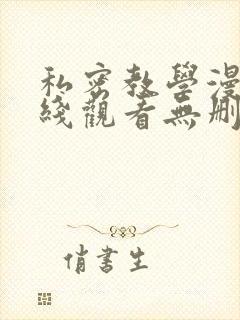 私密教學漫
綫觀看無刪
俏書生